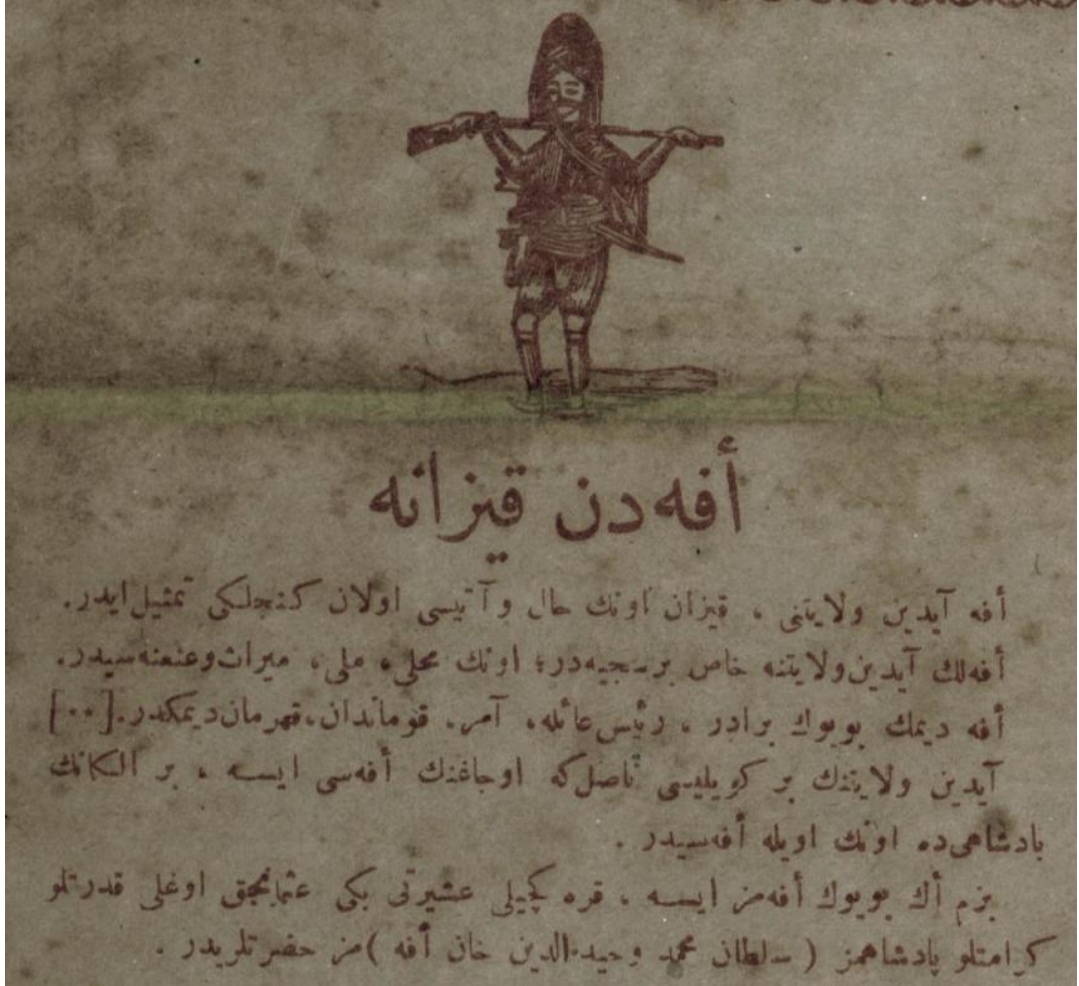 أفه‌دن قیزانه
أفه آیدین ولایتنی ، قیزان اونك حال وآتیسی اولان کنجلکی تمثیل ایدر.
أفه‌لك آیدین ولایتنه خاص برسجیه‌در؛ اونك محلی، ملی، میراث وعنعنه‌سیدر.
أفه دیمك بویوك برادر ، رئیس عائله، آمر. قوماندان، قهرمان دیمکدر.[۰۰]
آیدین ولایتنك بر کویلیسی ناصل‌که اوجاغنك أفه‌سی ایسه ، بر الکانك
پادشاهی‌ده اونك اویله أفه‌سیدر .
بزم أك بویوك أفه‌مز ایسه ، قره کچیلی عشیرتی بکی عثمانجق اوغلی قدرتلو
کرامتلو پادشاهمز ( سلطان محمد وحیدالدین خان أفه )مز حضرتلریدر .